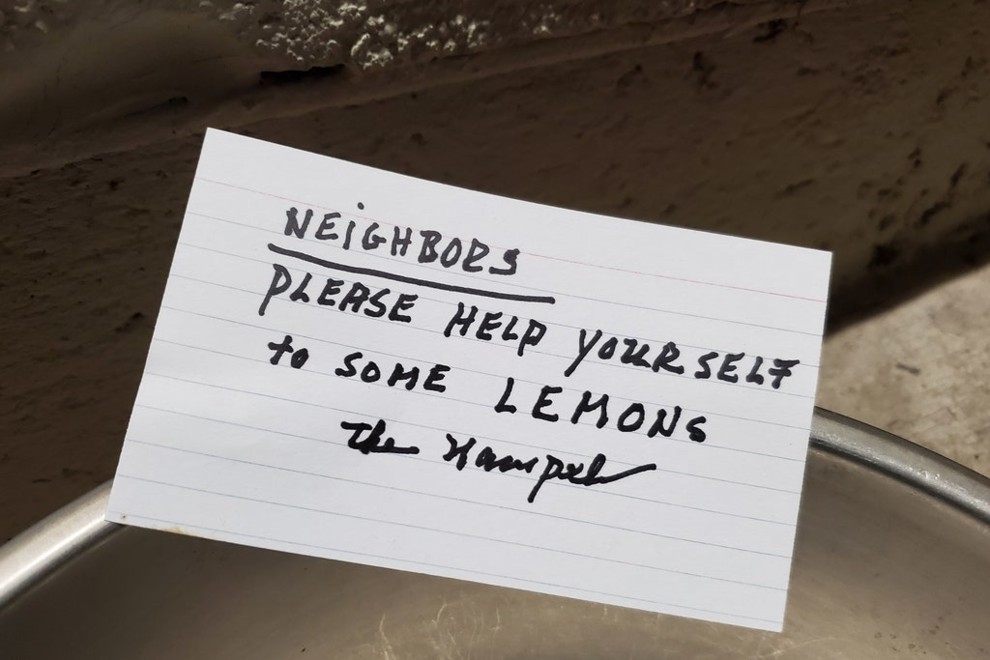 NEiGHBORS
PLEASE HELP YOURSELF
to SOME LEMONS
the